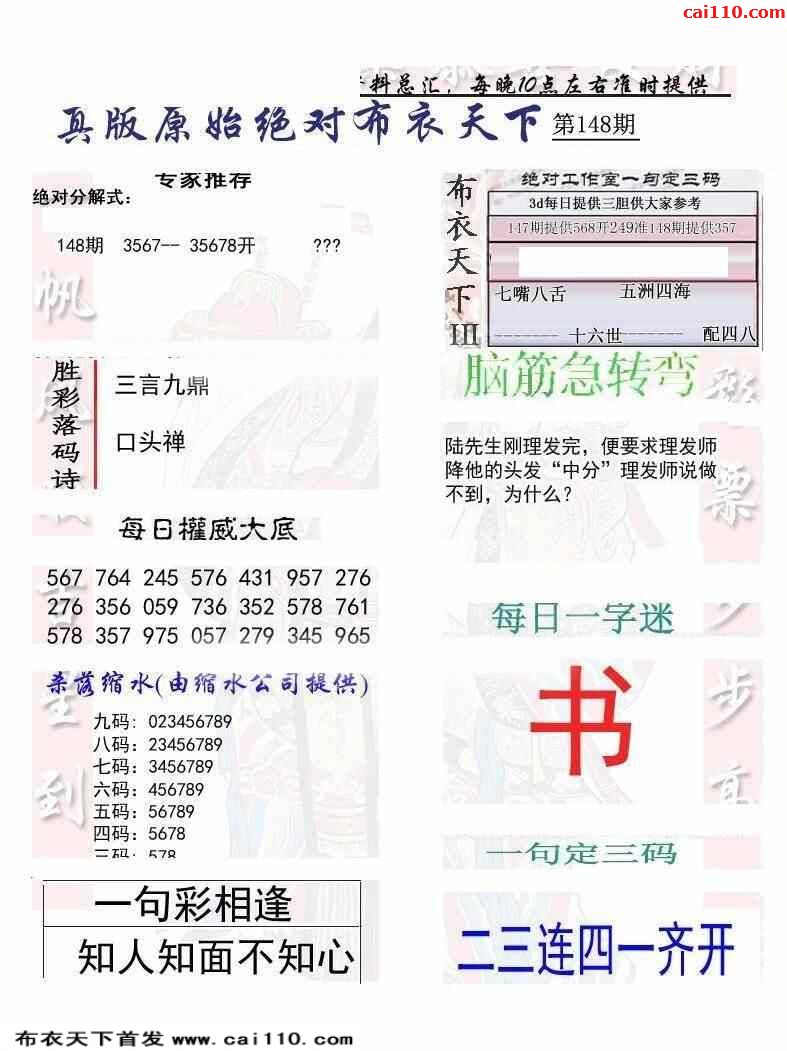 cai110.com
料总汇，每晚10点左右准时提供
真版原始绝对布衣天下 第148期
专家推荐
绝对分解式：
148期 3567-- 35678开 ???
胜彩落码诗
三言九鼎
口头禅
每日權威大底
567 764 245 576 431 957 276
276 356 059 736 352 578 761
578 357 975 057 279 345 965
杀落缩水(由缩水公司提供)
九码：023456789
八码：23456789
七码：3456789
六码：456789
五码：56789
四码：5678
三码：578
一句彩相逢
知人知面不知心
布衣天下III
绝对工作室一句定三码
3d每日提供三胆供大家参考
147期提供568开249准148期提供357
七嘴八舌 五洲四海
------- 十六世------- 配四八
脑筋急转弯
陆先生刚理发完，便要求理发师
降他的头发“中分”理发师说做
不到，为什么？
每日一字迷
书
一句定三码
二三连四一齐开
帆
风
吉
全
到
彩
票
步
高
布衣天下首发 www.cai110.com